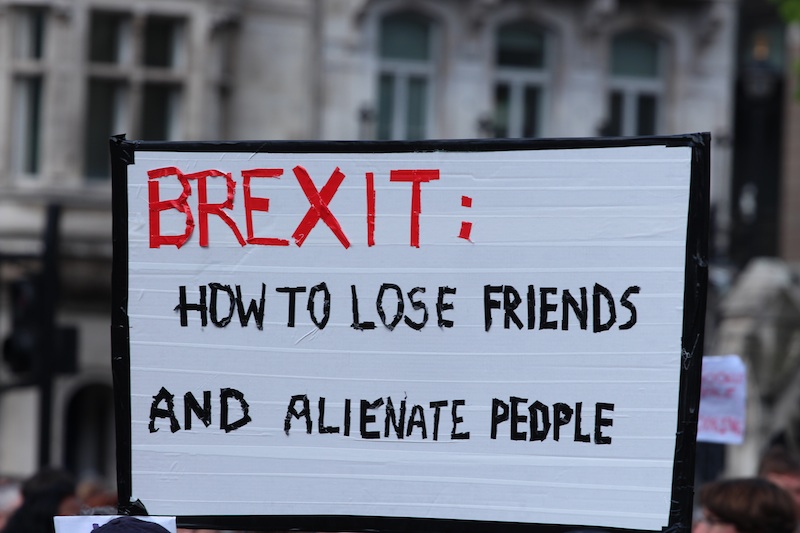 BREXIT:
HOW TO LOSE FRIENDS
AND ALIENATE PEOPLE